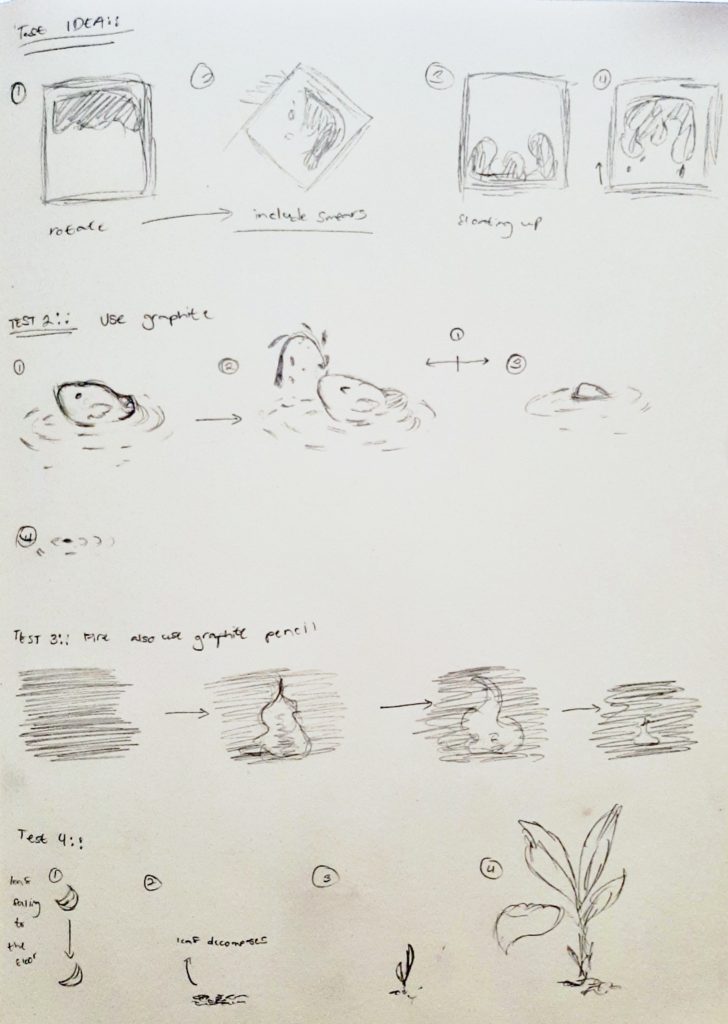 Test IDEA::
① ② ③ ④
rotate
include smears
floating up
TEST 2:: use graphite
① ② ① ③
④
TEST 3:: Fire also use graphite pencil
Test 4::
① ② ③ ④
leaf
falling
to
the
floor
leaf decomposes